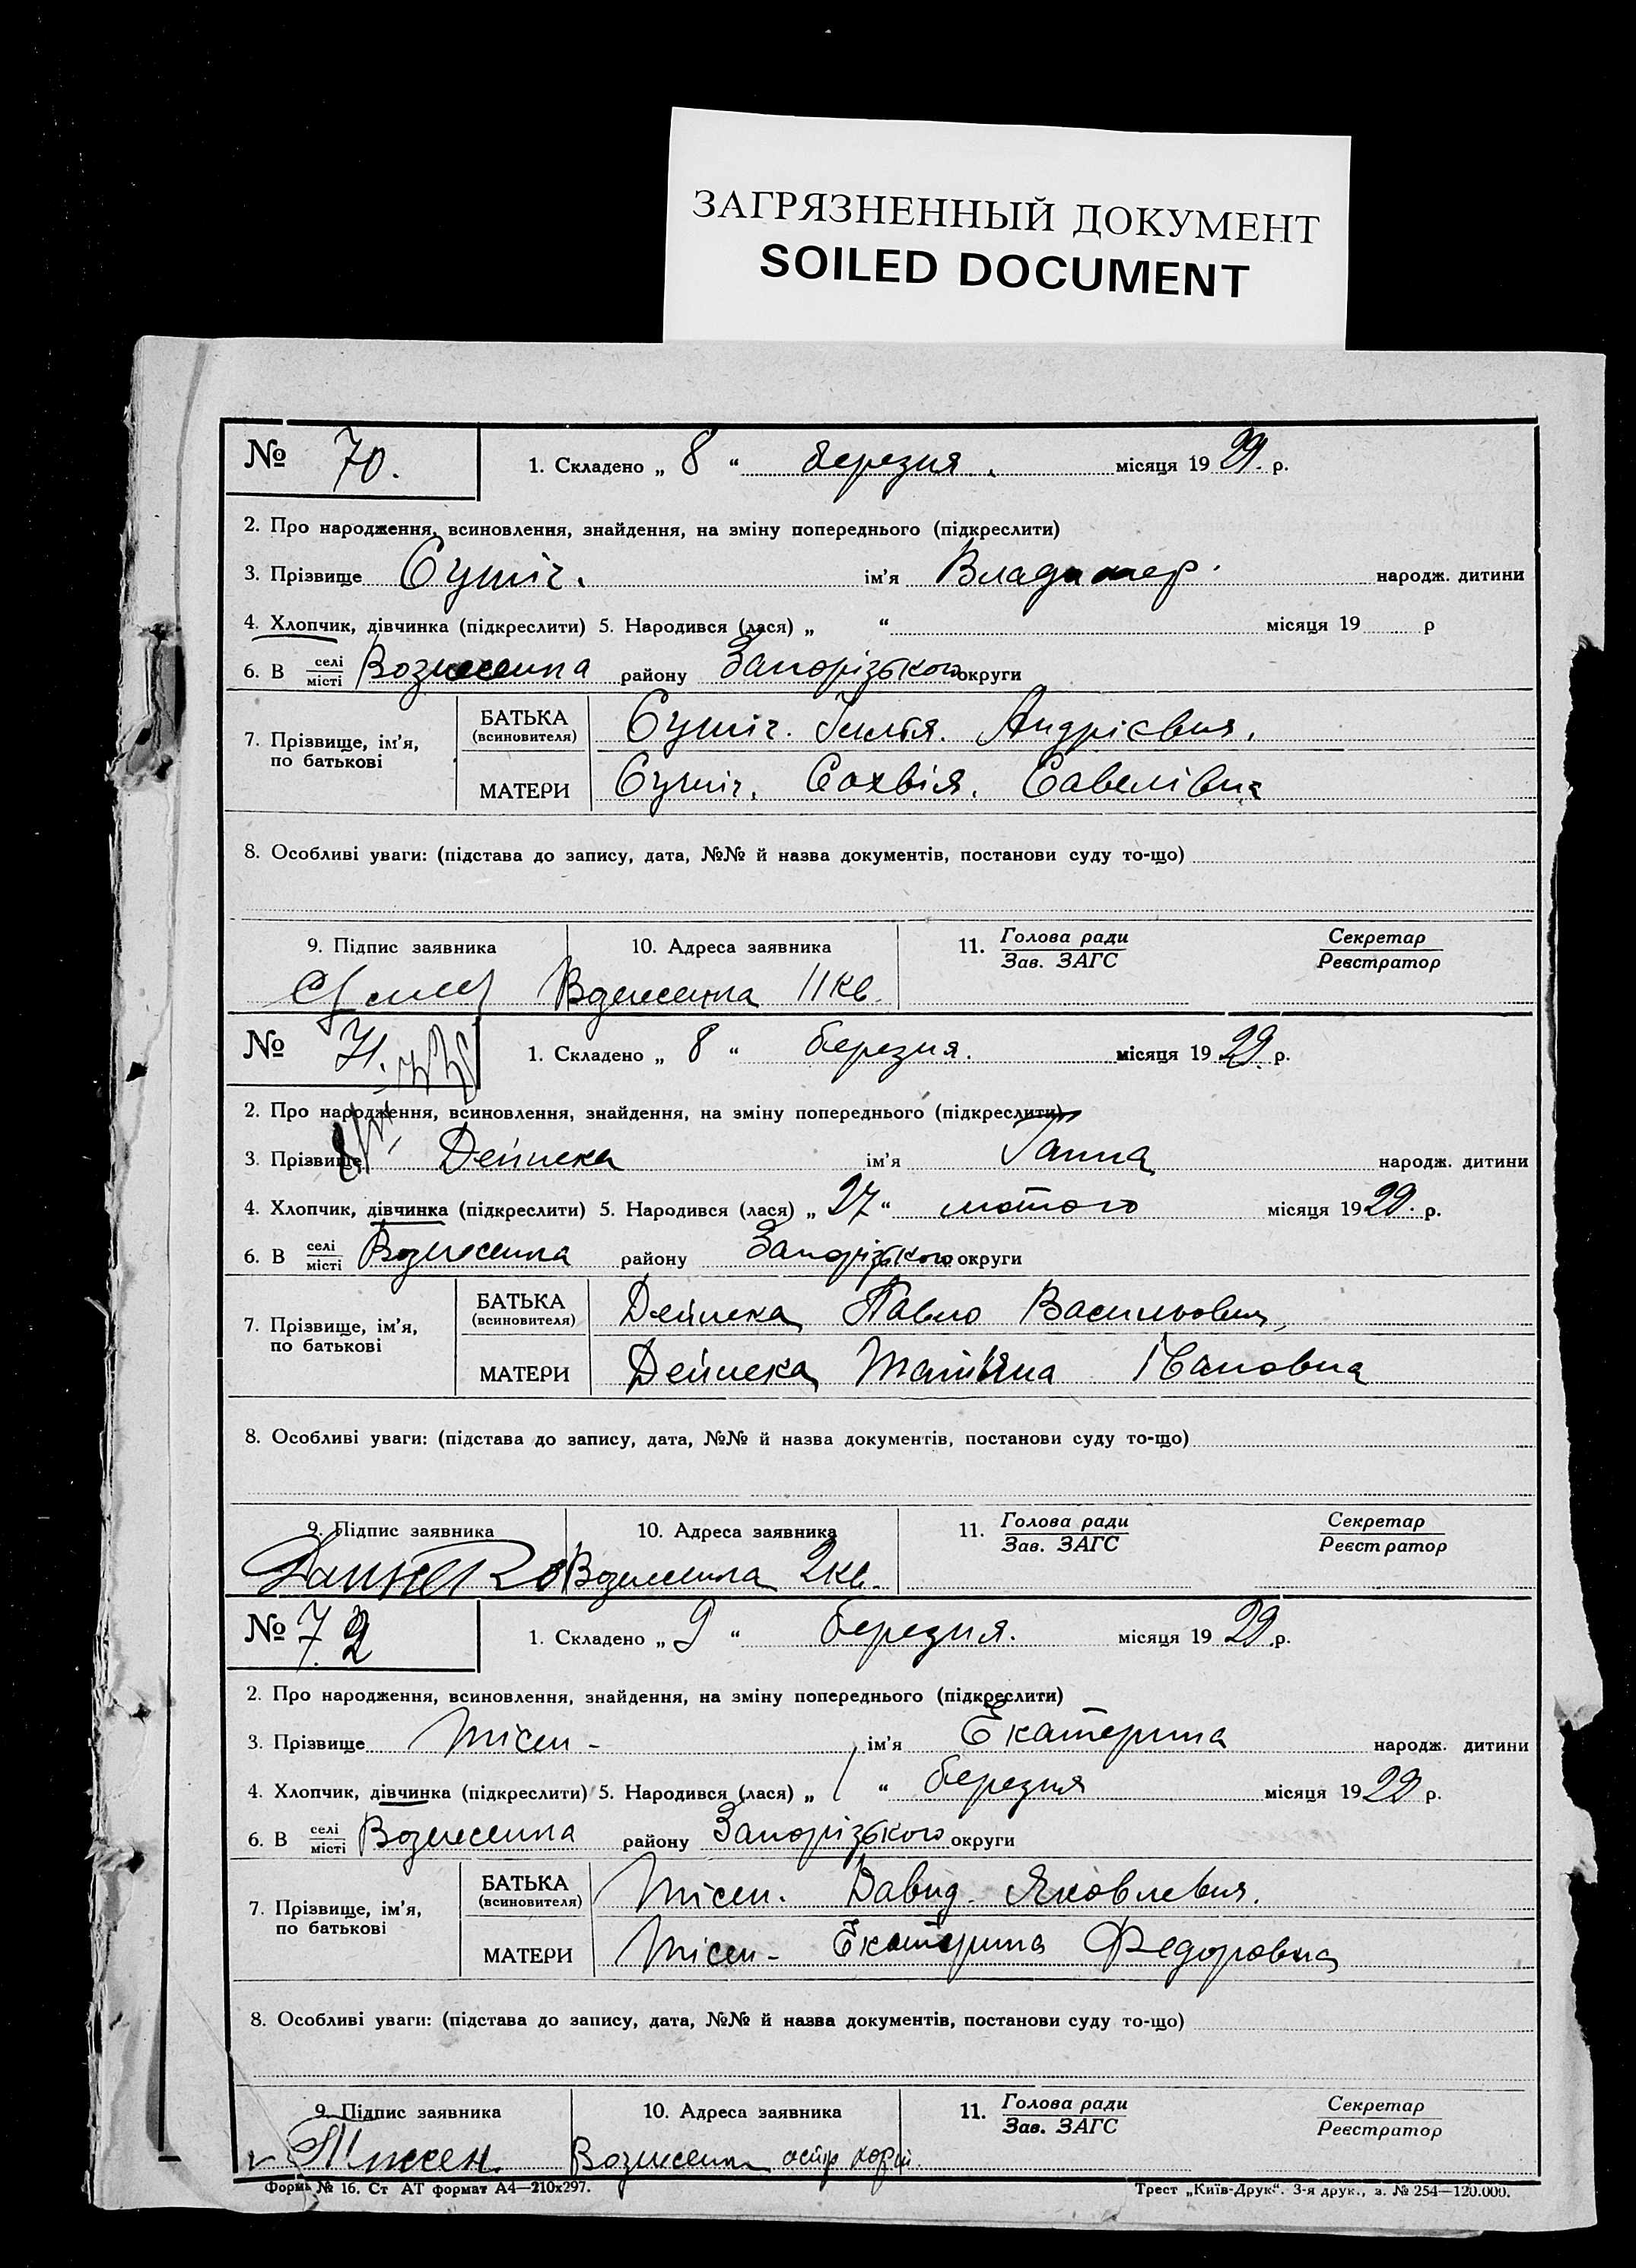 ЗАГРЯЗНЕННЫЙ ДОКУМЕНТ
SOILED DOCUMENT
№ 70. 1. Складено „ 8 “ березня . місяця 19 29. р.
2. Про народження, всиновлення, знайдення, на зміну попереднього (підкреслити)
3. Прізвище ім'я Владимер. народж. дитини
4. Хлопчик, дівчинка (підкреслити) 5. Народився (лася) „ “ місяця 19 р
6. В селі місті Вознесенка району Запорізького округи
7. Прізвище, ім'я, по батькові
БАТЬКА (всиновителя) Андрієвич.
МАТЕРИ Сохвія. Савелівна
8. Особливі уваги: (підстава до запису, дата, №№ й назва документів, постанови суду то-що)
9. Підпис заявника 10. Адреса заявника 11. Голова ради Зав. ЗАГС Секретар Реєстратор
Вознесенка 11 кв.
№ 71. 1. Складено „ 8 “ березня. місяця 19 29. р.
2. Про народження, всиновлення, знайдення, на зміну попереднього (підкреслити)
3. Прізвище Дейнека ім'я Ганна народж. дитини
4. Хлопчик, дівчинка (підкреслити) 5. Народився (лася) „ 27 “ лютого місяця 19 29. р.
6. В селі місті Вознесенка району Запорізького округи
7. Прізвище, ім'я, по батькові
БАТЬКА (всиновителя) Дейнека Павло Васильович
МАТЕРИ Дейнека Тат'яна Івановна
8. Особливі уваги: (підстава до запису, дата, №№ й назва документів, постанови суду то-що)
9. Підпис заявника 10. Адреса заявника 11. Голова ради Зав. ЗАГС Секретар Реєстратор
Вознесенка 2 кв.
№ 72 1. Складено „ 9 “ березня. місяця 19 29 р.
2. Про народження, всиновлення, знайдення, на зміну попереднього (підкреслити)
3. Прізвище Тісен - ім'я Екатерина народж. дитини
4. Хлопчик, дівчинка (підкреслити) 5. Народився (лася) „ 1 “ березня місяця 19 29 р.
6. В селі місті Вознесенка району Запорізького округи
7. Прізвище, ім'я, по батькові
БАТЬКА (всиновителя) Тісен. Давид. Яковлевич.
МАТЕРИ Тісен - Екатерина Федоровна
8. Особливі уваги: (підстава до запису, дата, №№ й назва документів, постанови суду то-що)
9. Підпис заявника 10. Адреса заявника 11. Голова ради Зав. ЗАГС Секретар Реєстратор
Вознесенка
Форма № 16. Ст АТ формат А4—210x297. Трест „Київ-Друк“. 3-я друк., з. № 254—120.000.